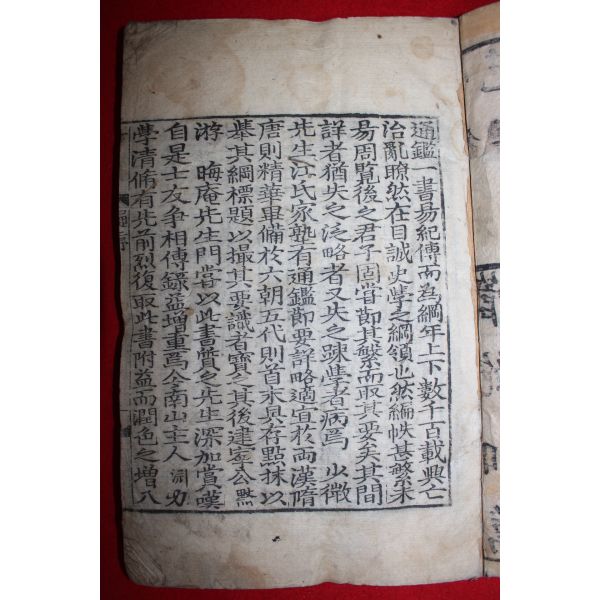 通鑑一書易紀傳而為綱年上下數千百載興亡
治亂瞭然在目誠史學之綱領也然編帙甚繁未
易周覽後之君子固嘗節其繁而取其要矣其間
詳者猶失之泛略者又失之疎學者病焉 少微
先生江氏家塾有通鑑節要詳略適宜於兩漢隋
唐則精華畢備於六朝五代則首末具存點抹以
舉其綱標題以撮其要識者寶之其後建寧公默
游 晦庵先生門嘗以此書質之先生深加賞嘆
自是士友争相傳錄益增重焉今南山主人淵力
學清脩有光前烈復取此書附益而潤色之增入